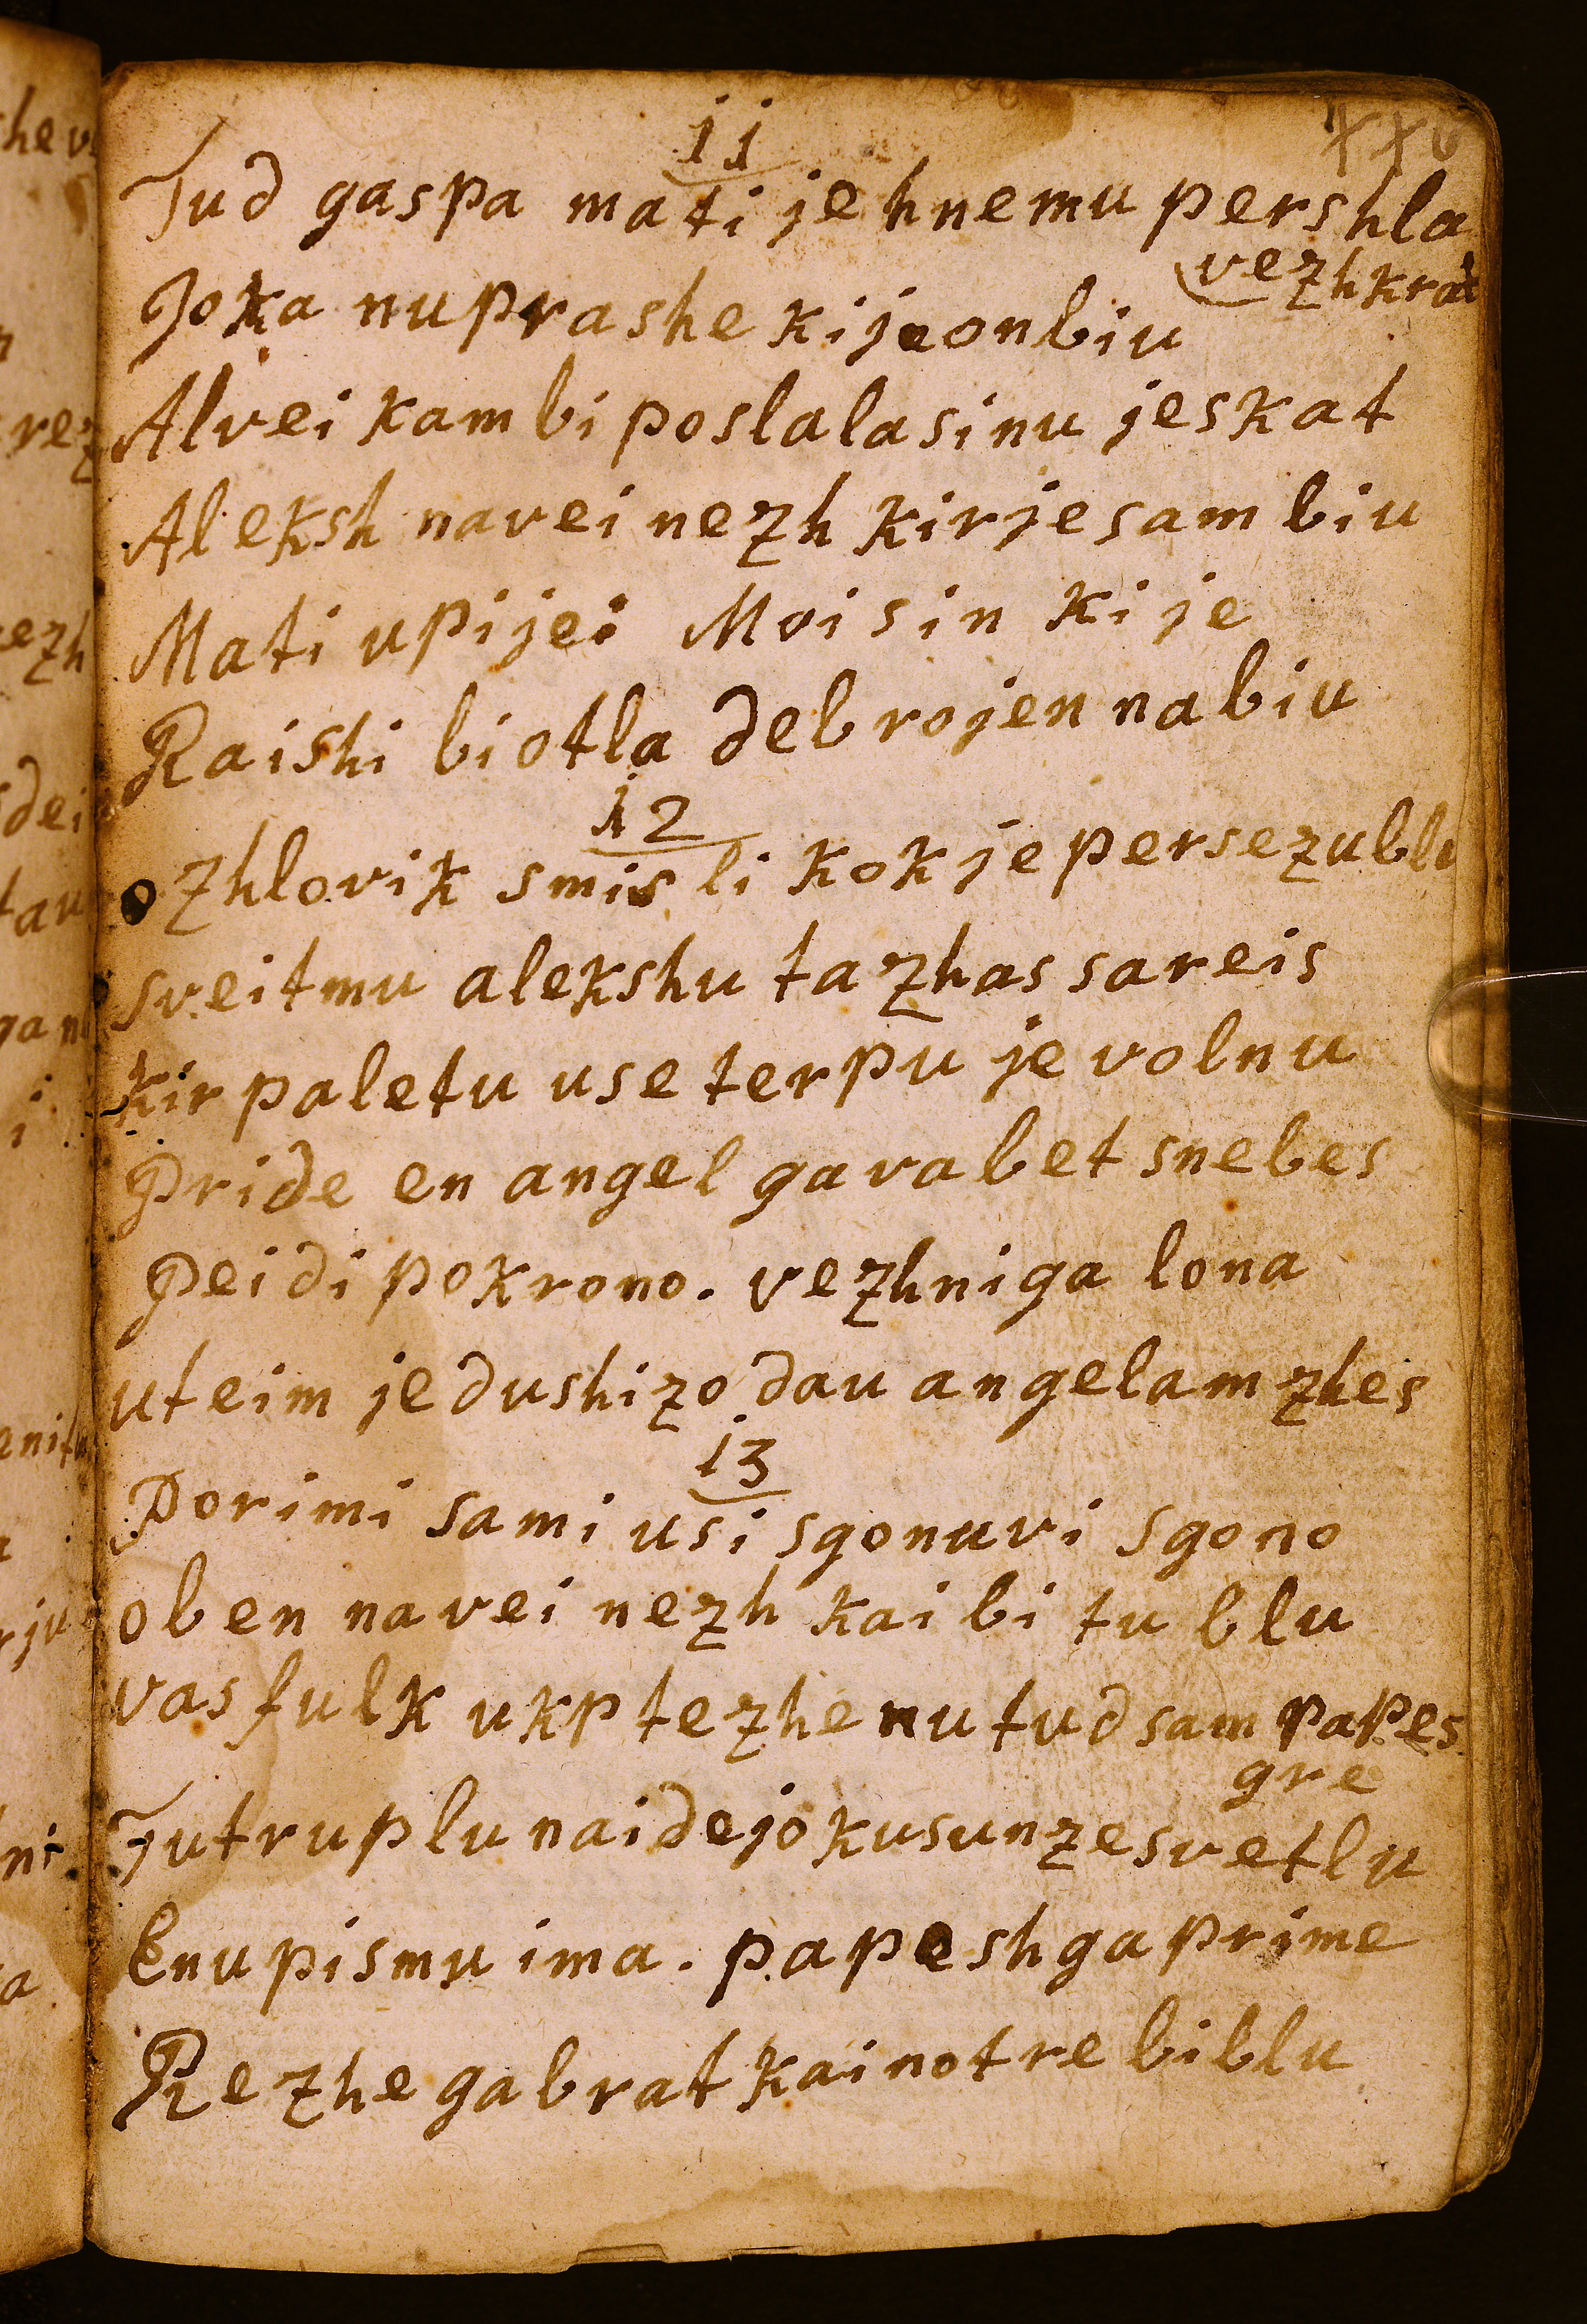 11
Tud gaspa mati je hnemu pershla
vezhkrat
Joka nu prashe ki je on biu
Alvei kam bi poslala sinu jeskat
Aleksh navei nezh kir je sam biu
Mati upije: Moi sin ki je
Raishi bi otla deb rojen na biu
12
o zhlovik smisli kok je perse zublu
sveitmu alekshu ta zhas sareis
kir paletu use terpu je volnu
Pride en angel ga vabet snebes
Peidi po krono. vezhniga lona
uteim je dushizo dau angelam zhes
13
Po rimi sami usi sgonuvi sgono
oben navei nezh kai bi tu blu
vas fulk ukp tezhe nu tud sam papes
gre
Tu truplu naidejo ku sunze svetlu
Enu pismu ima. papesh ga prime
Rezhe ga brat kai not re bi blu